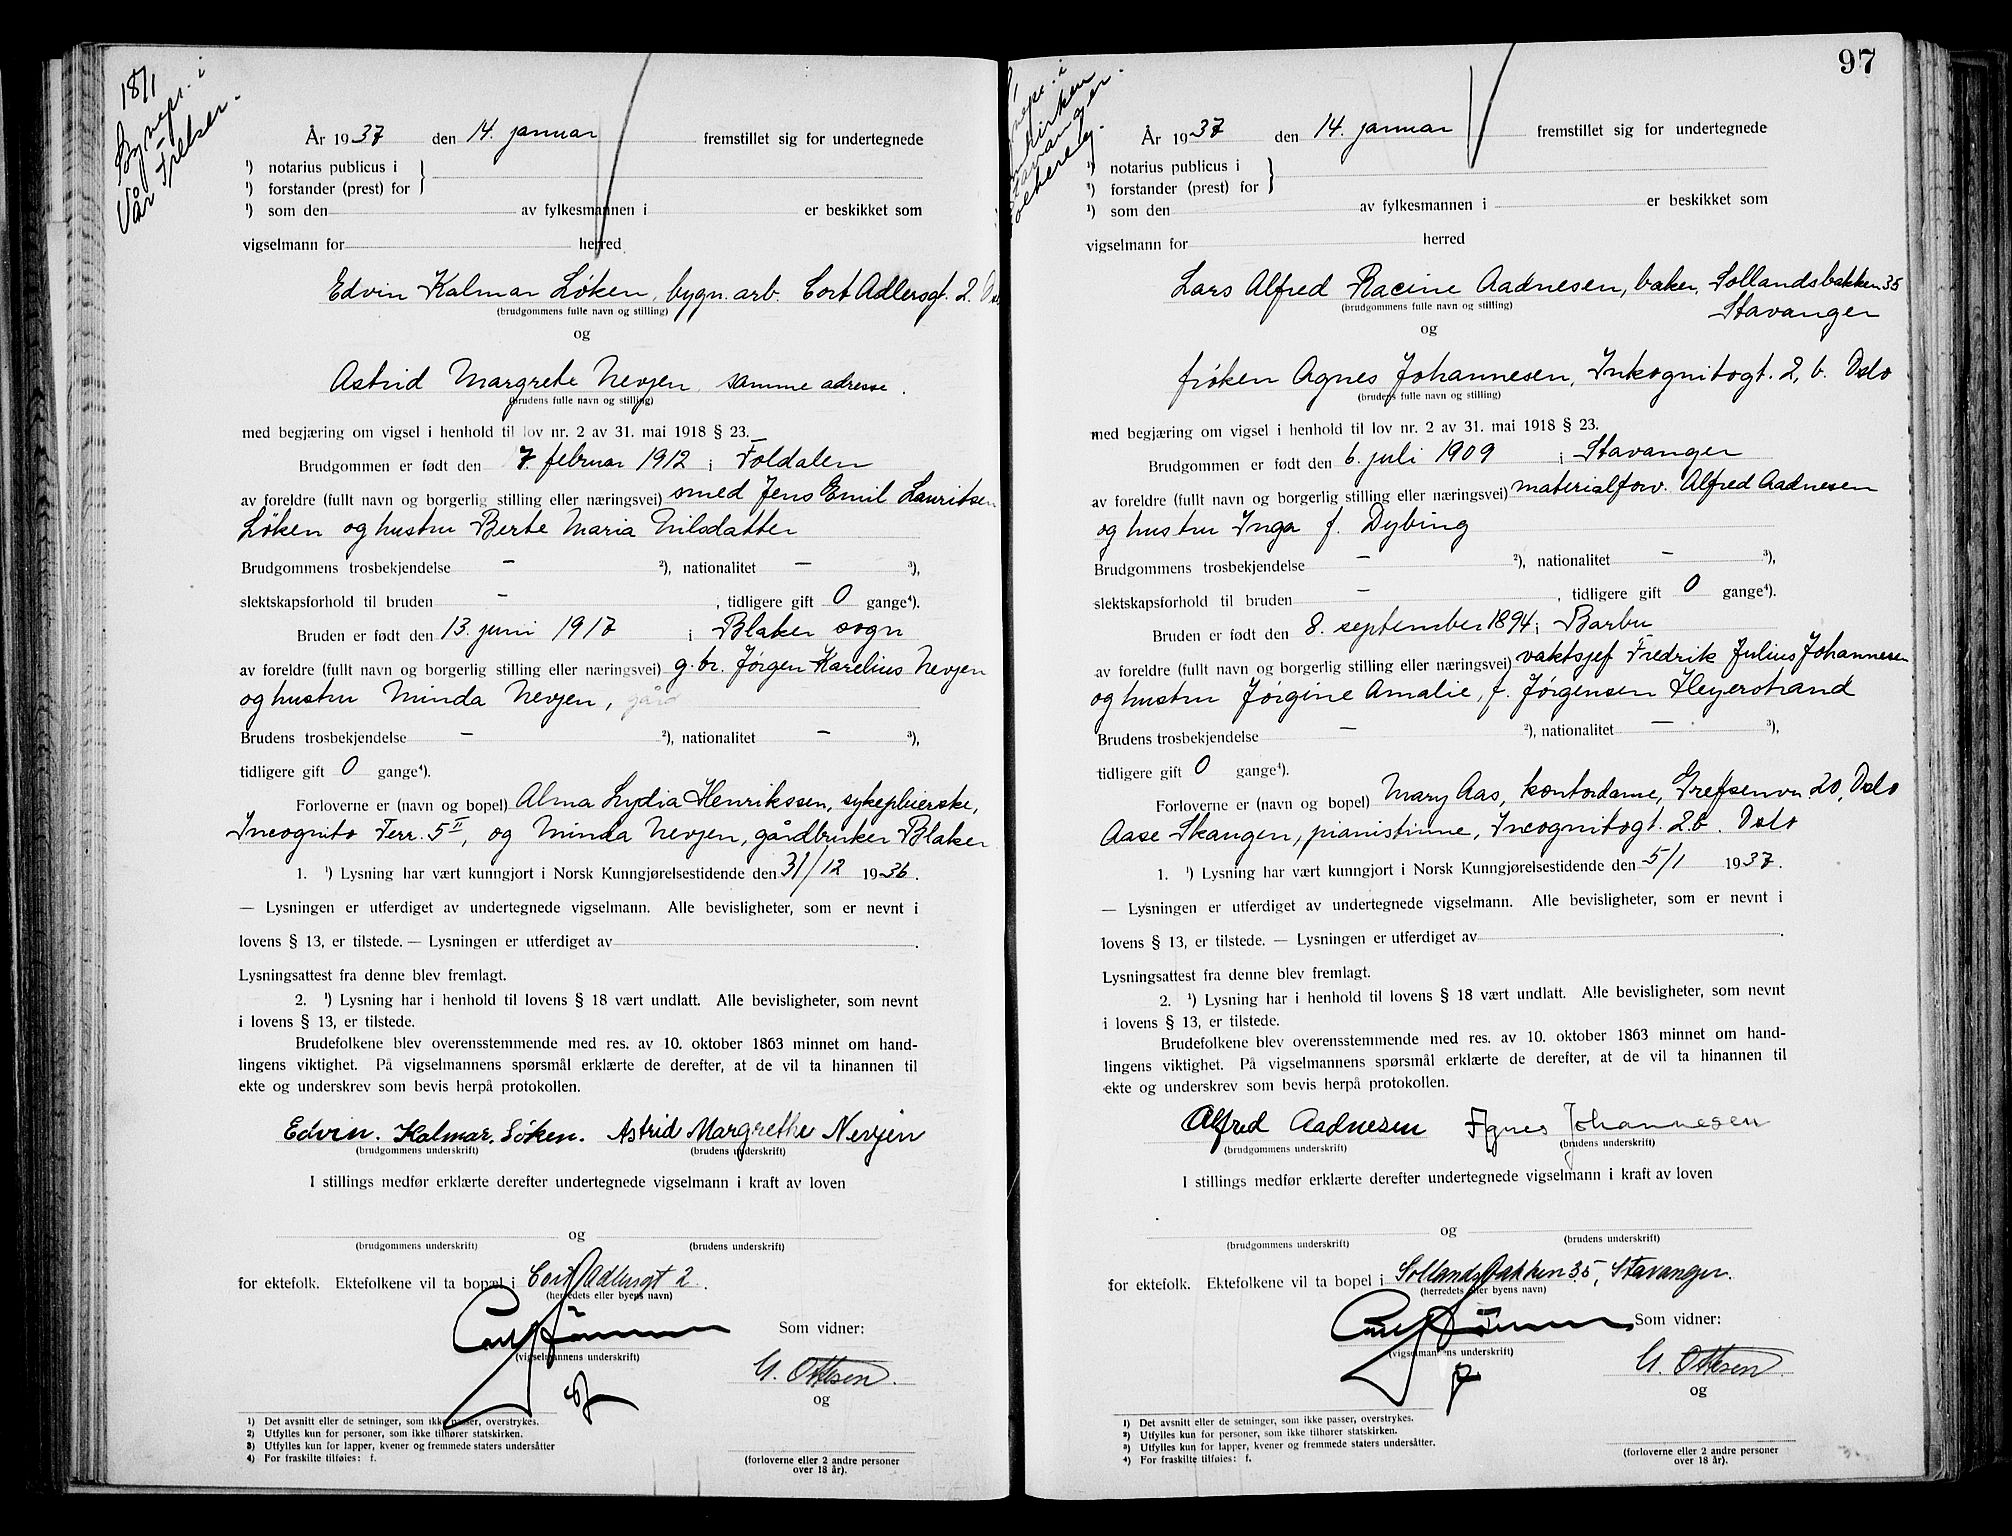 18/1
Bynepr. i
Vår Frelser.
År 1937 den 14. januar fremstillet sig for undertegnede
¹) notarius publicus i
¹) forstander (prest) for }
¹) som den av fylkesmannen i er beskikket som
vigselmann for herred
Edvin Kalmar Løken, bygn. arb. Cort Adlersgt. 2.
(brudgommens fulle navn og stilling)
og
Astrid Margrete Nevjen, samme adresse.
(brudens fulle navn og stilling)
med begjæring om vigsel i henhold til lov nr. 2 av 31. mai 1918 § 23.
Brudgommen er født den 7. februar 1912 i Foldalen
av foreldre (fullt navn og borgerlig stilling eller næringsvei) smed Jens Emil Lauritsen
Løken og hustru Berte Maria Nilsdatter
Brudgommens trosbekjendelse – ²), nationalitet – ³),
slektskapsforhold til bruden – , tidligere gift 0 gange⁴).
Bruden er født den 13. juni 1917 i Blaker sogn
av foreldre (fullt navn og borgerlig stilling eller næringsvei) g.br. Jørgen Karelius Nevjen
og hustru Minda Nevjen, gård
Brudens trosbekjendelse – ²), nationalitet – ³),
tidligere gift 0 gange⁴).
Forloverne er (navn og bopel) Alma Lydia Henrikssen, sykepleierske,
Incognito Terr. 5 II, og Minda Nevjen, gårdbruker Blaker
1. ¹) Lysning har vært kunngjort i Norsk Kunngjørelsestidende den 31/12 1936.
— Lysningen er utferdiget av undertegnede vigselmann. Alle bevisligheter, som er nevnt i
lovens § 13, er tilstede. — Lysningen er utferdiget av .
Lysningsattest fra denne blev fremlagt.
2. ¹) Lysning har i henhold til lovens § 18 vært undlatt. Alle bevisligheter, som nevnt
i lovens § 13, er tilstede.
Brudefolkene blev overensstemmende med res. av 10. oktober 1863 minnet om hand-
lingens viktighet. På vigselmannens spørsmål erklærte de derefter, at de vil ta hinannen til
ekte og underskrev som bevis herpå protokollen.
Edvin. Kalmar. Løken. Astrid Margrethe Nevjen
(brudgommens underskrift) (brudens underskrift)
I stillings medfør erklærte derefter undertegnede vigselmann i kraft av loven
og
(brudgommens underskrift) (brudens underskrift)
for ektefolk. Ektefolkene vil ta bopel i Cort Adlersgt 2.
(herredets eller byens navn)
Som vidner:
(vigselmannens underskrift)
G. Ottesen.
og
1) Det avsnitt eller de setninger, som ikke passer, overstrykes.
2) Utfylles kun for personer, som ikke tilhører statskirken.
3) Utfylles kun for lapper, kvener og fremmede staters undersåtter
4) For fraskilte tilføies: f.
(forloverne eller 2 andre personer
over 18 år).
97
nepr. i
kirken
Stavanger
År 1937 den 14. januar fremstillet sig for undertegnede
¹) notarius publicus i
¹) forstander (prest) for }
¹) som den av fylkesmannen i er beskikket som
vigselmann for herred
Lars Alfred Racine Aadnesen, baker, Sollandsbakken 35
(brudgommens fulle navn og stilling) Stavanger
og
frøken Agnes Johannesen, Inkognitogt. 2, b. Oslo
(brudens fulle navn og stilling)
med begjæring om vigsel i henhold til lov nr. 2 av 31. mai 1918 § 23.
Brudgommen er født den 6. juli 1909 i Stavanger
av foreldre (fullt navn og borgerlig stilling eller næringsvei) materialforv. Alfred Aadnesen
og hustru Inga f. Dybing
Brudgommens trosbekjendelse – ²), nationalitet – ³),
slektskapsforhold til bruden – , tidligere gift 0 gange⁴).
Bruden er født den 8. september 1894 i Barbu
av foreldre (fullt navn og borgerlig stilling eller næringsvei) vaktsjef Fredrik Julius Johannesen
og hustru Jørgine Amalie, f. Jørgensen Heyerstrand
Brudens trosbekjendelse – ²), nationalitet – ³),
tidligere gift 0 gange⁴).
Forloverne er (navn og bopel) Mary Aas, kontordame, Grefsenvn 20, Oslo
Aase Skangen, pianistinne, Incognitogt. 2 b. Oslo
1. ¹) Lysning har vært kunngjort i Norsk Kunngjørelsestidende den 5/1 1937.
— Lysningen er utferdiget av undertegnede vigselmann. Alle bevisligheter, som er nevnt i
lovens § 13, er tilstede. — Lysningen er utferdiget av .
Lysningsattest fra denne blev fremlagt.
2. ¹) Lysning har i henhold til lovens § 18 vært undlatt. Alle bevisligheter, som nevnt
i lovens § 13, er tilstede.
Brudefolkene blev overensstemmende med res. av 10. oktober 1863 minnet om hand-
lingens viktighet. På vigselmannens spørsmål erklærte de derefter, at de vil ta hinannen til
ekte og underskrev som bevis herpå protokollen.
Alfred Aadnesen Agnes Johannesen
(brudgommens underskrift) (brudens underskrift)
I stillings medfør erklærte derefter undertegnede vigselmann i kraft av loven
og
(brudgommens underskrift) (brudens underskrift)
for ektefolk. Ektefolkene vil ta bopel i Sollandsbakken 35, Stavanger.
(herredets eller byens navn)
Som vidner:
(vigselmannens underskrift)
G. Ottesen
og
1) Det avsnitt eller de setninger, som ikke passer, overstrykes.
2) Utfylles kun for personer, som ikke tilhører statskirken.
3) Utfylles kun for lapper, kvener og fremmede staters undersåtter.
4) For fraskilte tilføies: f.
(forloverne eller 2 andre personer
over 18 år).